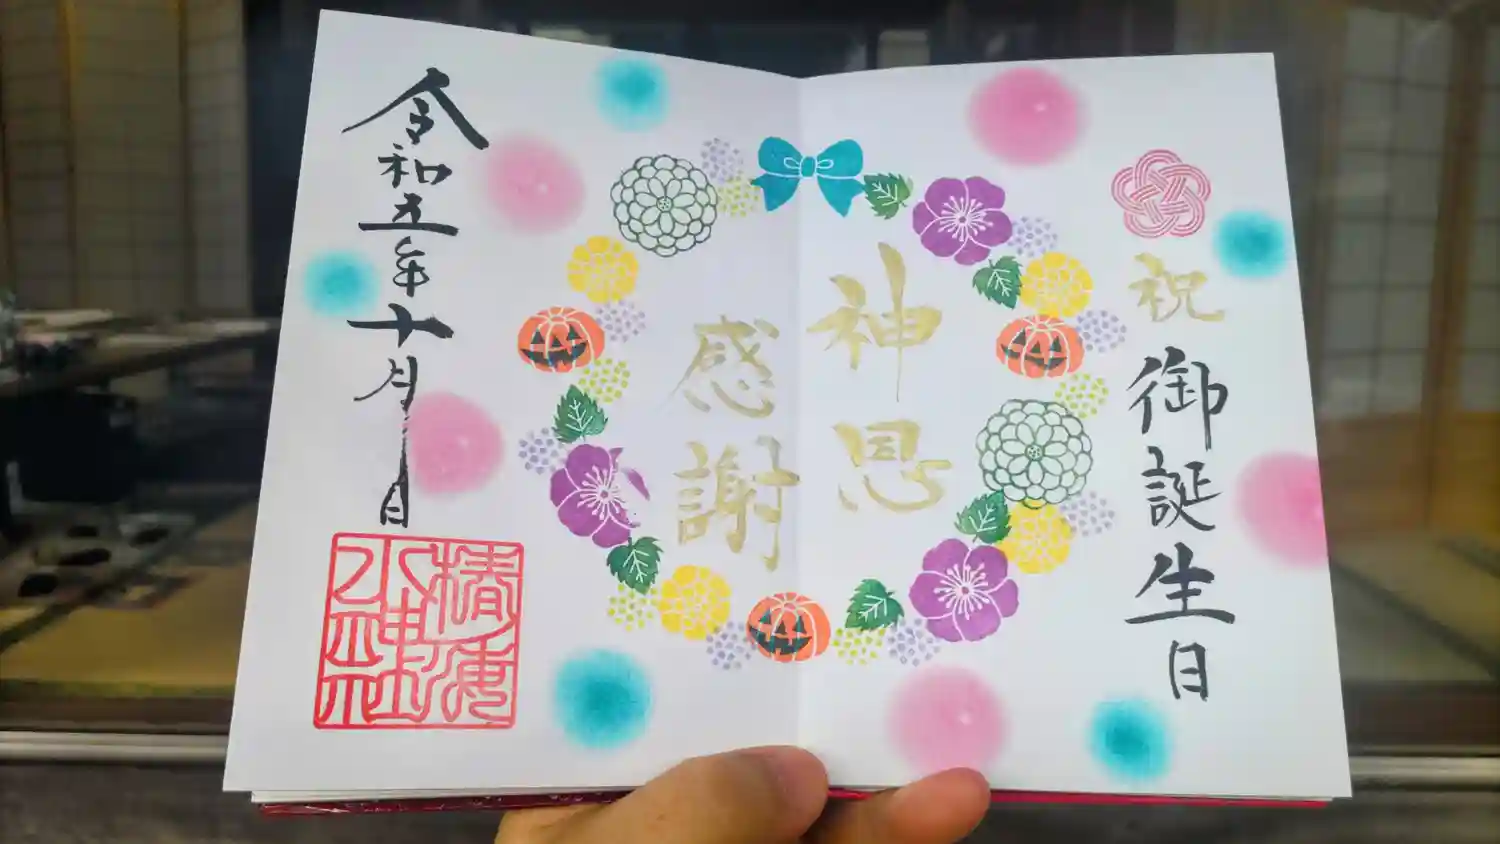 祝 御誕生日
神恩
感謝
令和五年十月一日
椿海
水神社